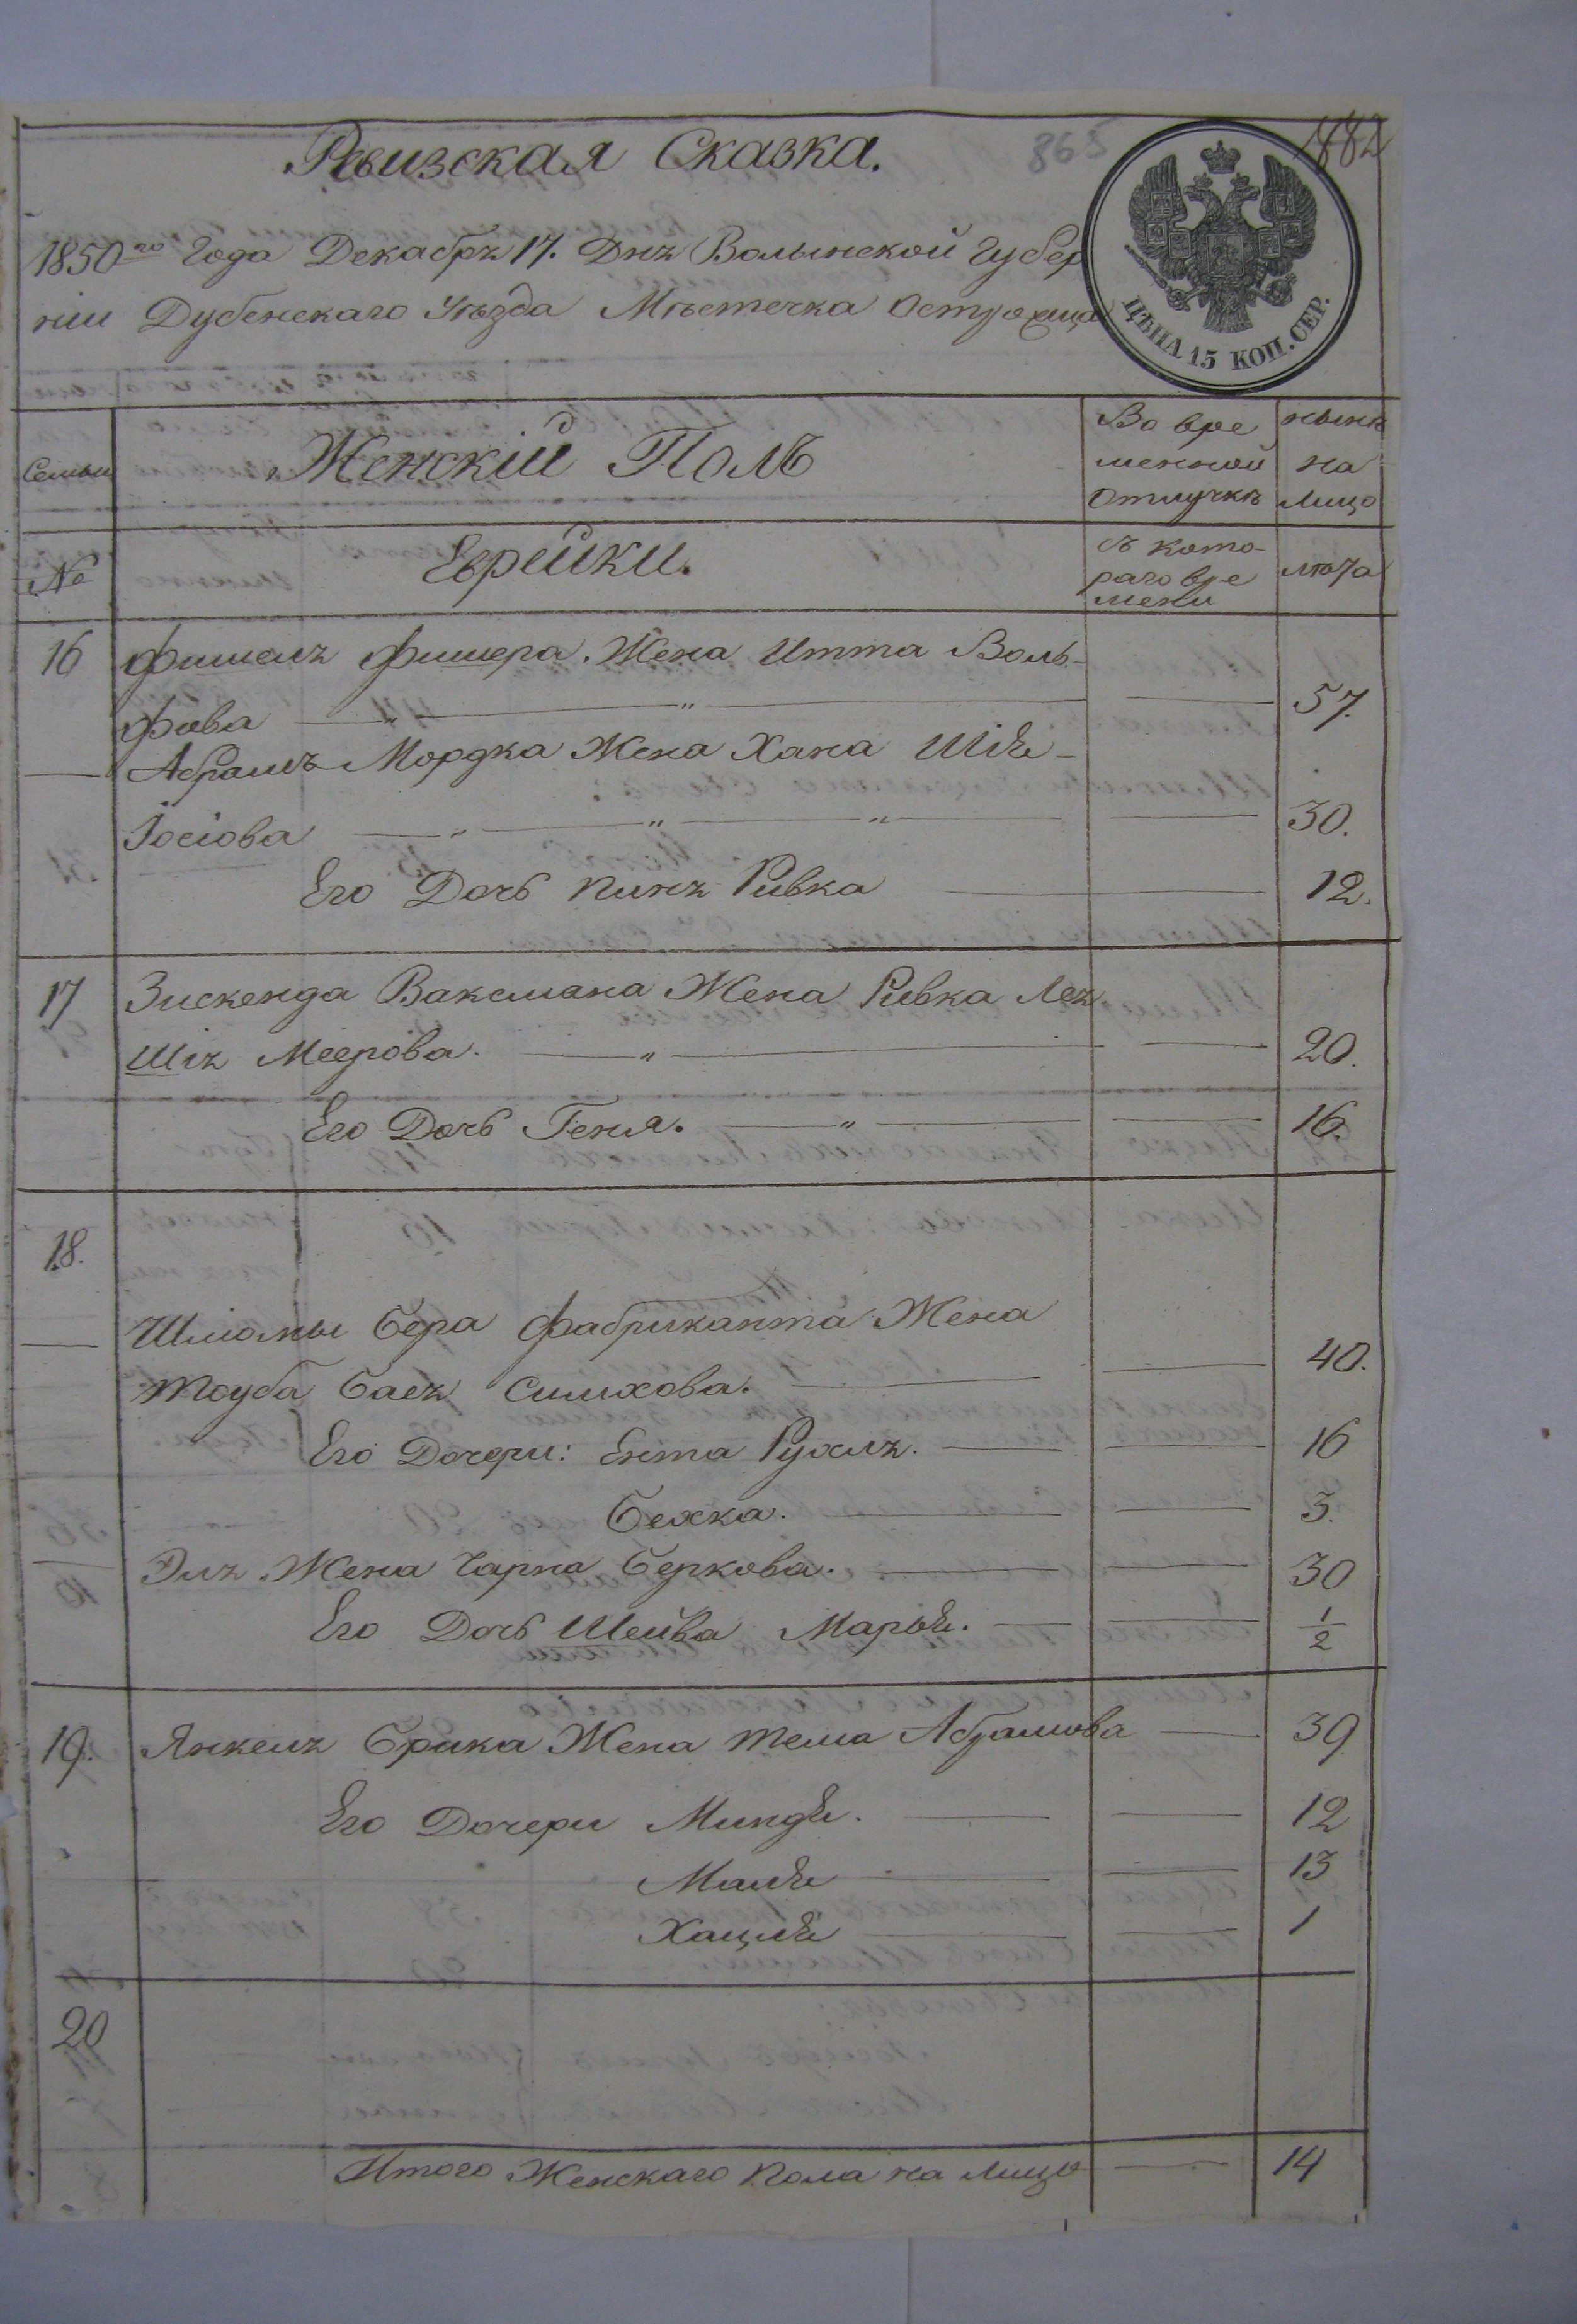 Ревизская Сказка.
865
882
1850го Года Декабръ 17. Днъ Волынской Губер
ніи Дубенскаго Уѣзда Мѣстечка Острожца
ЦѢНА 15 КОП. СЕР.
Семьи Женскій Полъ Во вре менной отлучкѣ нынѣ на лицо
№ Еврейки. съ кото- раго вре мени лѣта
16 Фишелъ Фишера. Жена Итта Воль-
фова 57.
Абрамъ Мордка Жена Хана
Іосіова 30.
Его Дочь Ривка 12.
17 Зискенда Ваксмана Жена Ривка Лея
Меерова. 20.
Его Дочь Геня. 16.
18.
Шліомы Бера Фабриканта Жена
Тоуба Баси Симхова. 40.
Его Дочери: Ента Рухлъ. 16
Бехка. 3.
Элъ Жена Чарна Беркова. 30
Его Дочь Шейва Марья. 1/2
19. Янкелъ Брика Жена Тема Абрамова 39
Его Дочери Миндя. 12
Маля 13
Хацля 1
20
Итого Женскаго Пола на Лицо 14